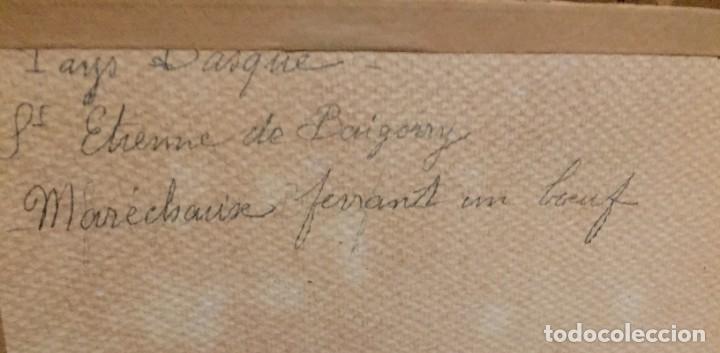 Pays Basque -
St Etienne de Baigorry
Maréchaux ferrant un bœuf
todocoleccion